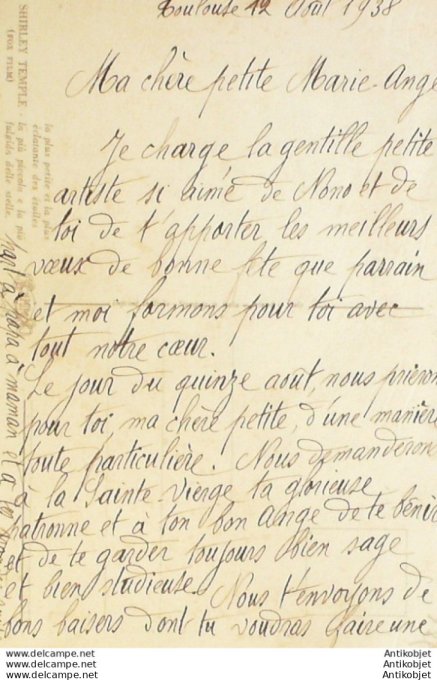 Toulouse 12 Août 1938
Ma chère petite Marie-Ange
Je charge la gentille petite
artiste si aimé de Nono et de
toi de t'apporter les meilleurs
vœux de bonne fête que parrain
et moi formons pour toi avec
tout notre cœur.
Le jour du quinze août, nous prieron
pour toi, ma chère petite, d'une manière
toute particulière. Nous demanderon
à la Sainte Vierge ta glorieuse
patronne et à ton bon Ange de te bénir
et de te garder toujours bien sage
et bien studieuse. Nous t'envoyons de
bons baisers dont tu voudras faire une
part à papa à maman et a
SHIRLEY TEMPLE - la più piccola e la più
(FOX FILM) fulgida delle stelle.
la plus petite et la plus
éclatante des étoiles
http://www.antikobjet.com
Antikobjet
Antikobjet
Antikobjet